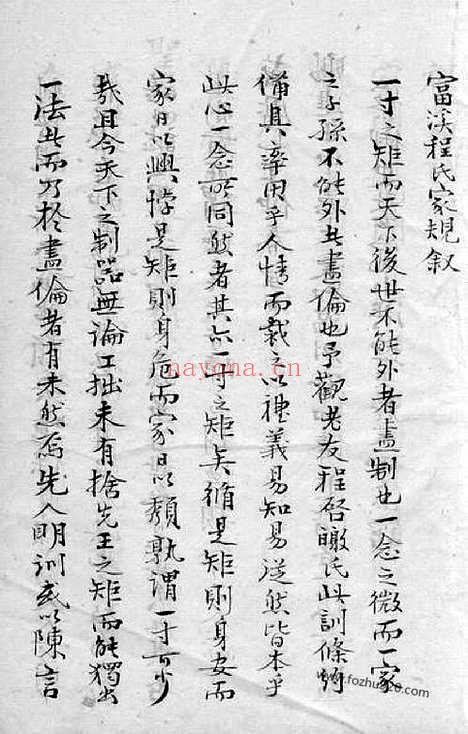 富溪程氏家規叙
一寸之矩而天下後世不能外者盡制也一念之微而一家
之子孫不能外者盡倫也予觀老友程啓皦氏此訓條列
備具率因乎人情而裁之以禮義易知易從然皆本乎
此心一念所同然者其亦一寸之矩矣循是矩則身安而
家日以興悖是矩則身危而家日以頽孰謂一寸可少
哉且今天下之制器無論工拙未有捨先王之矩而能獨出
一法者而乃於盡倫者有未然焉先人明訓或以陳言
nayona.cn
www.fozhu920.com